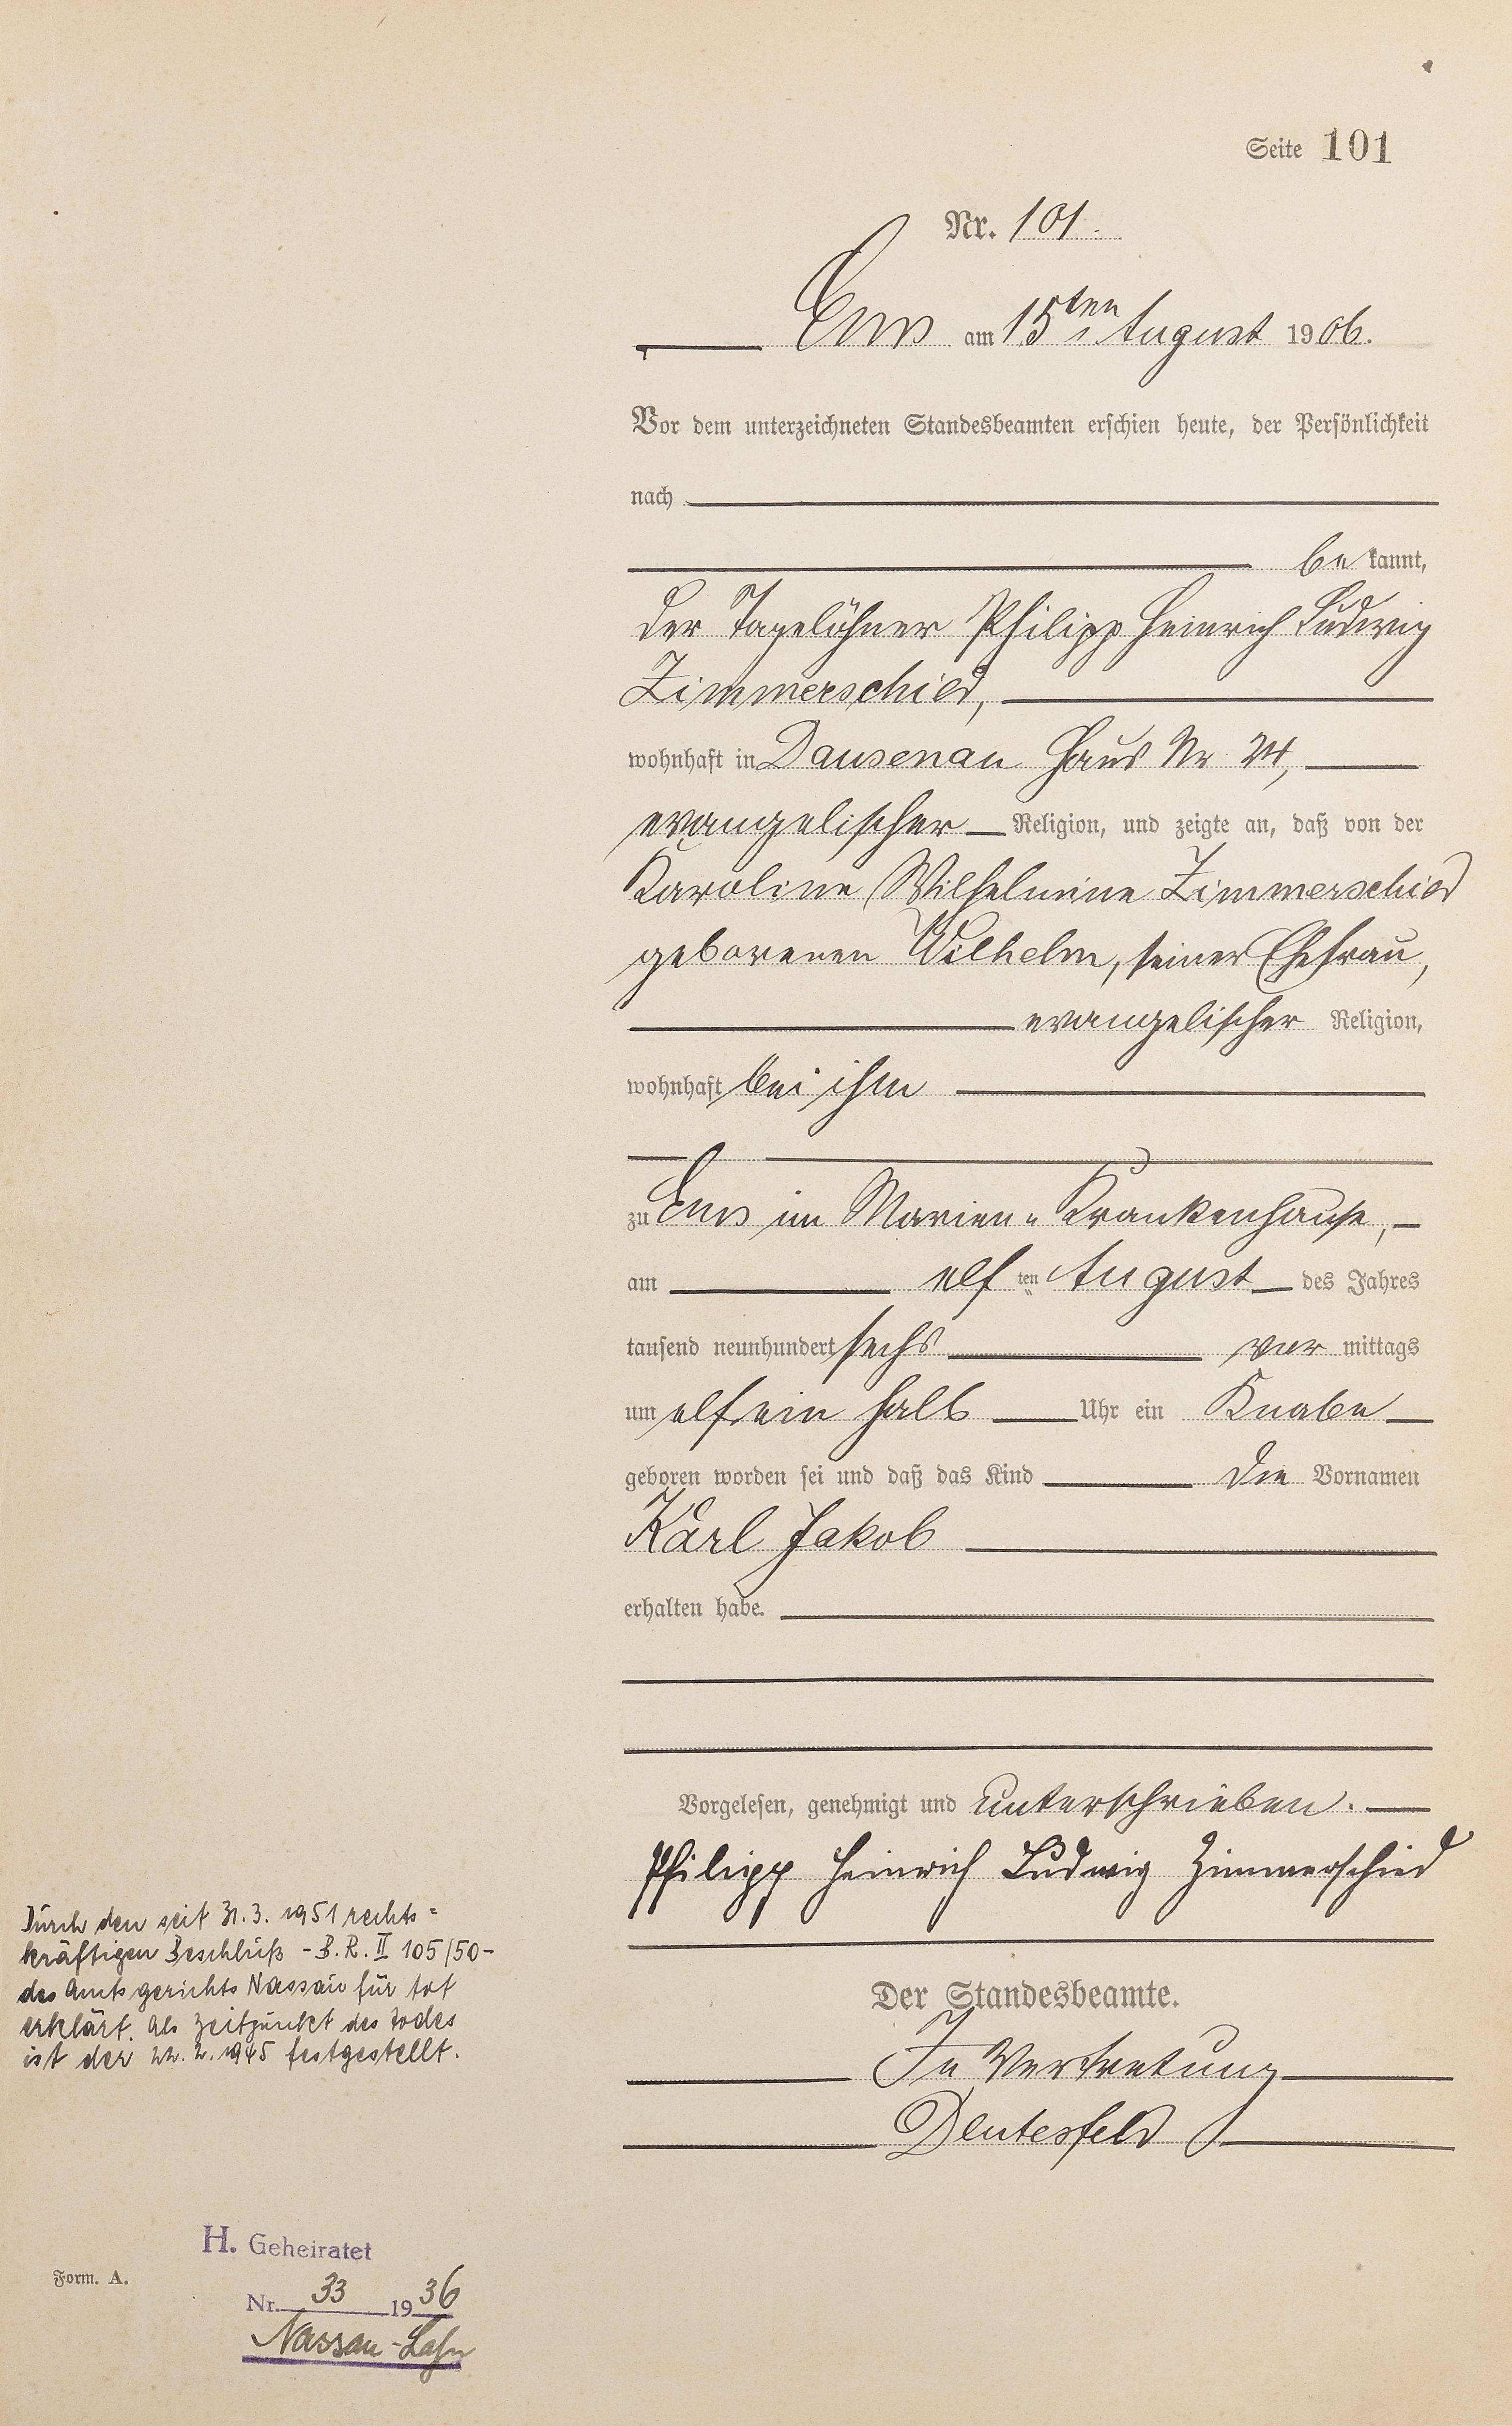 Seite 101
Nr. 101.
Ems am 15ten August 1906.
Vor dem unterzeichneten Standesbeamten erschien heute, der Persönlichkeit
nach
be kannt,
der Tagelöhner Philipp Heinrich Ludwig
Zimmerschied,
wohnhaft in Dausenau Haus Nr
evangelischer Religion, und zeigte an, daß von der
Karoline Wilhelmine Zimmerschied
geborenen Wilhelm, seiner Ehefrau,
evangelischer Religion,
wohnhaft bei ihm
zu Ems im Marien-Krankenhause,
am elf ten August des Jahres
tausend neunhundert sechs vor mittags
um elfein halb Uhr ein Knabe
geboren worden sei und daß das Kind die Vornamen
Karl Jakob
erhalten habe.
Vorgelesen, genehmigt und unterschrieben.
Philipp Heinrich Ludwig Zimmerschied
Der Standesbeamte.
In Vertretung
Deutesfeld
Durch den seit 31.3.1951 rechts=
kräftigen Beschluß - B.R. II 105/50-
des Amtsgerichts Nassau für tot
erklärt. Als Zeitpunkt des Todes
ist der 22.2.1945 festgestellt.
H. Geheiratet
Form. A.
Nr. 33 1936
Nassau-Lahn